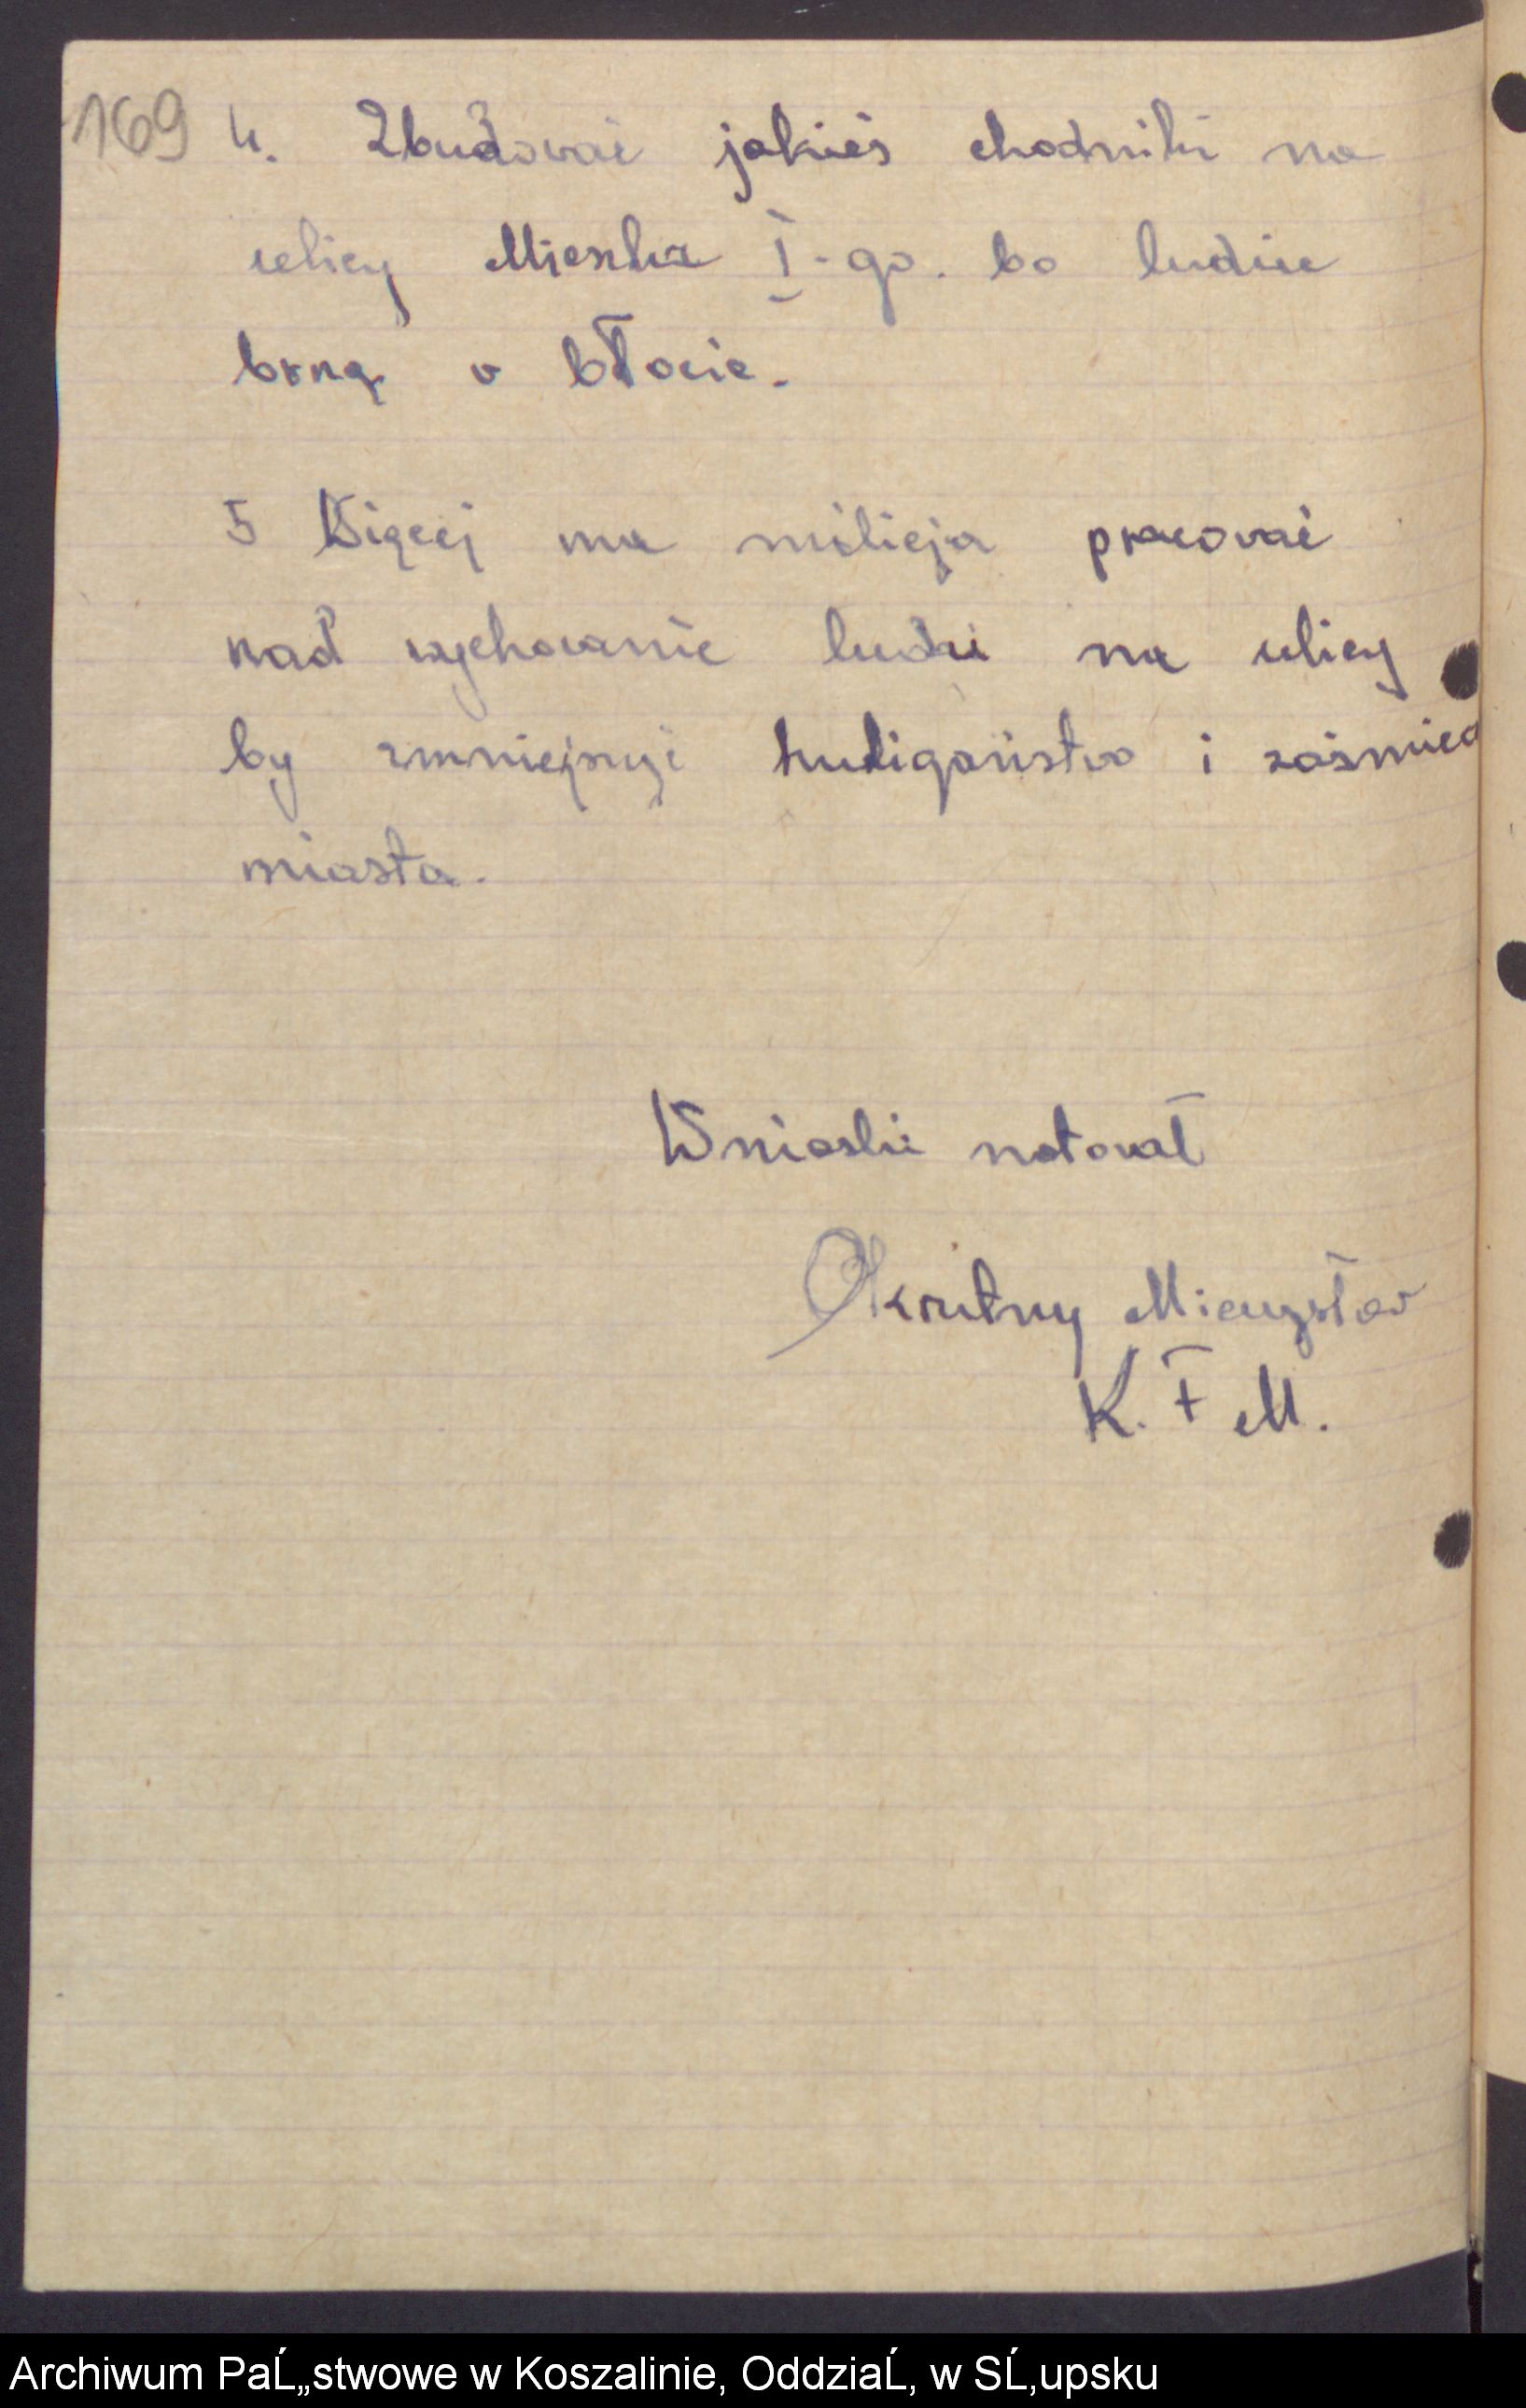 169 4. Zbudować jakieś chodniki na
ulicy Mieszka I-go. bo ludzie
brną w błocie.
5 Więcej ma milicja pracować
nad wychowanie ludzi na ulicy
by zmniejszyć huligaństwo i zaśmiec
miasta.
Wnioski notował
Okrutny Mieczysław
K. F M.
Archiwum PaĹ„stwowe w Koszalinie, OddziaĹ‚ w SĹ‚upsku